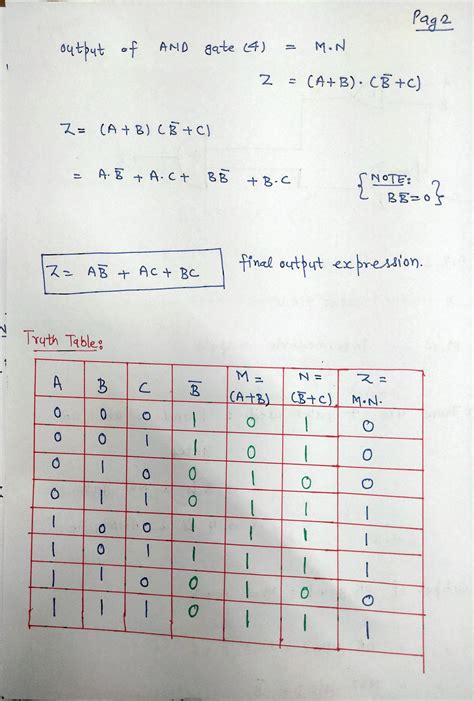 Pag 2
output of AND gate (4) = M.N
Z = (A+B)·(B̅+C)
Z= (A+B)(B̅+C)
= A.B̅ + A.C+ BB̅ +B.C {NOTE: BB̅=0}
Z= AB̅ + AC + BC final output expression.
Truth Table:
A B C B̅ M = (A+B) N = (B̅+C) Z = M.N.
0 0 0 1 0 1 0
0 0 1 1 0 1 0
0 1 0 0 1 0 0
0 1 1 0 1 1 1
1 0 0 1 1 1 1
1 0 1 1 1 1 1
1 1 0 0 1 0 0
1 1 1 0 1 1 1